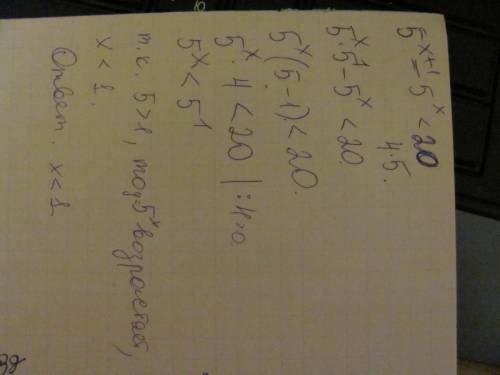 5^{x+1} - 5^x < 20
4·5.
5^x·5^1 - 5^x < 20
5^x(5-1) < 20.
5^x·4 < 20 | :4>0
5^x < 5^1
т.к. 5>1, то 5^x возрастает,
x < 1.
Ответ. x < 1